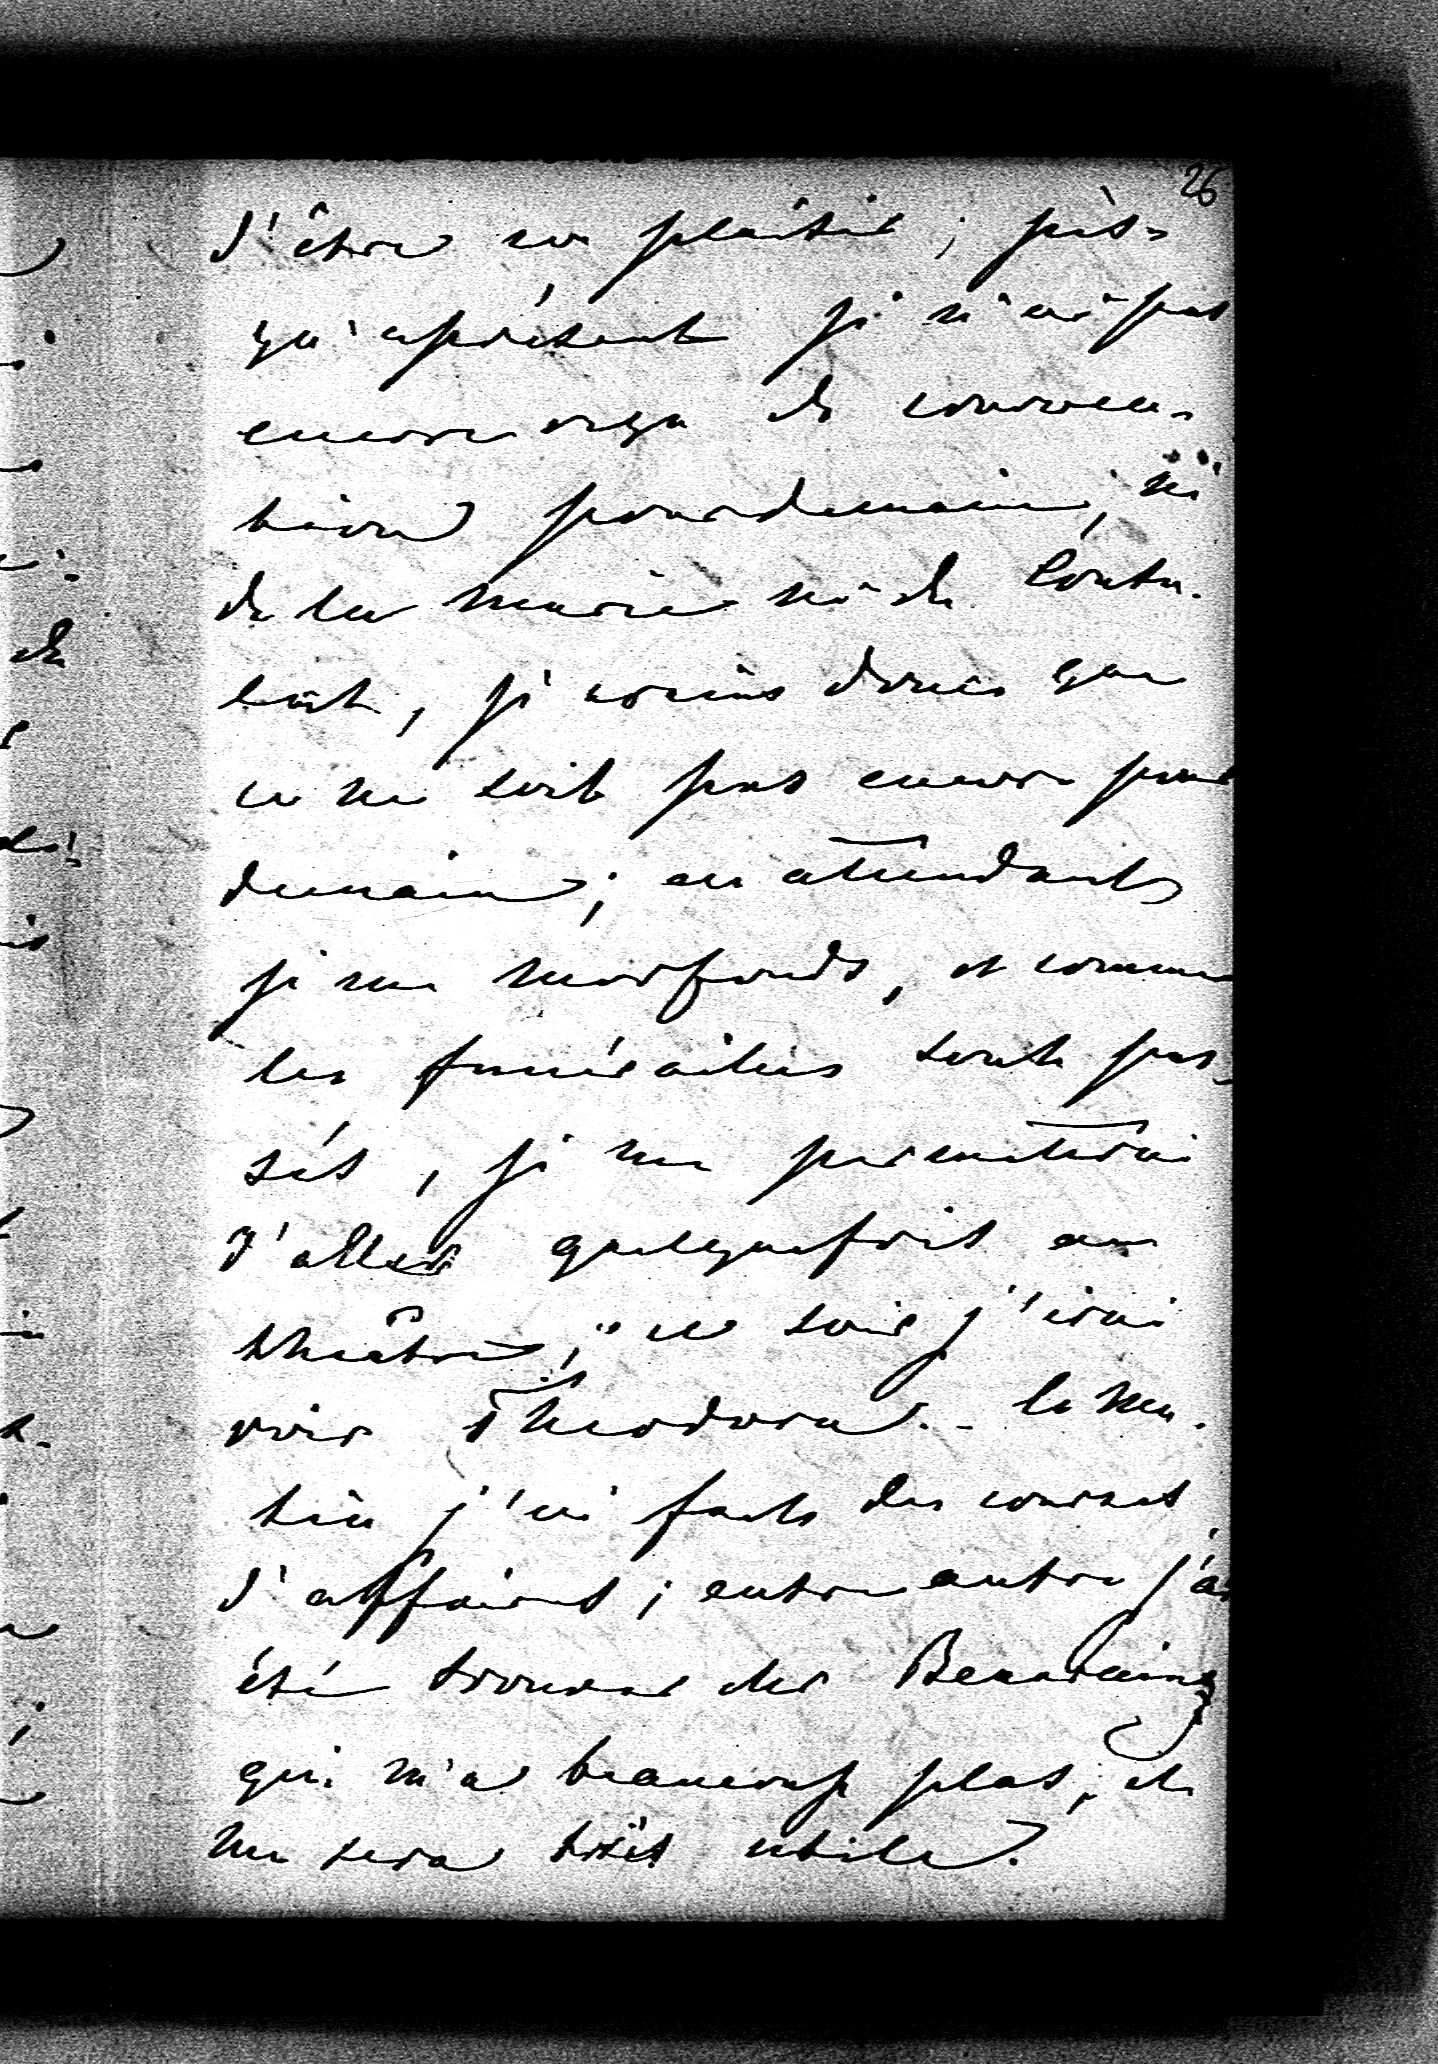 26
d'être un plaisir; jus-
qu'aprésent je n'ai pas
encore reçu de convoca-
tions pour demain, ni
de la mairie ni de Conta-
lait, je crains donc que
ce ne soit pas encore pour
demain; en attendant
je me morfonds, et comme
les funérailles sont pas-
sés, je me permettrai
d'aller quelquefois au
théâtre; ce soir j'irai
voir Théodora. - le ma-
tin j'ai fait des courses
d'affaires; entre autre j'ai
été trouver der
qui m'a beaucoup plus, et
me sera très utile.